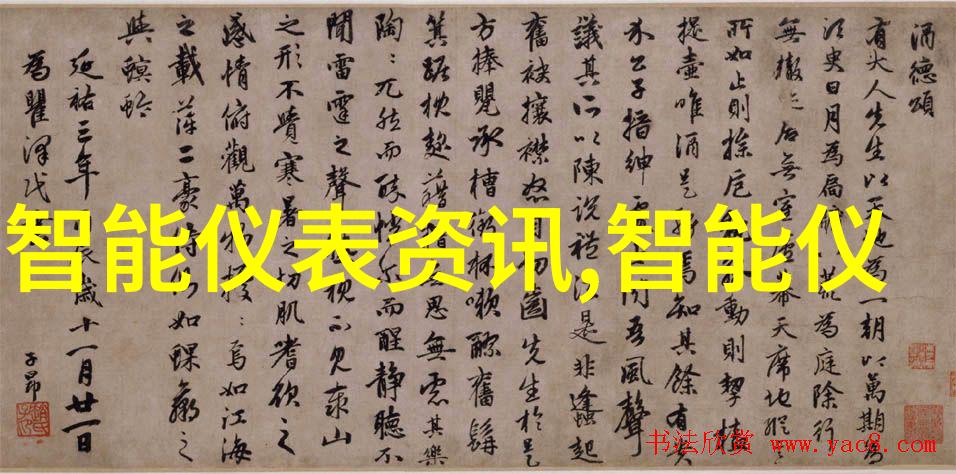 酒德頌
有大人先生以天地為一朝以萬期為
須臾日月為扃八荒為庭除行
無轍迹居無室廬幕天席地縱
所如止則操卮動則挈榼
提壺唯酒是焉知其餘有貴
介公子搢紳聞吾風聲
議其所以陳說禮法是非鋒起
奮袂攘襟怒目切齒先生於是
方捧甖承槽銜杯漱醪奮髯
箕踞枕麴藉糟無思無慮其樂
陶〻兀然而醉怳爾而醒靜聽不
聞雷霆之聲視不見泰山
之形不覺寒暑之切肌嗜欲之
感情俯觀萬物擾〻焉如江海
之載萍二豪侍側如蜾蠃之
與螟蛉
延祐三年辰歲十一月廿一日
為瞿澤民
子昂
智能仪表资讯,智能仪
书法欣赏 www.yac8.com